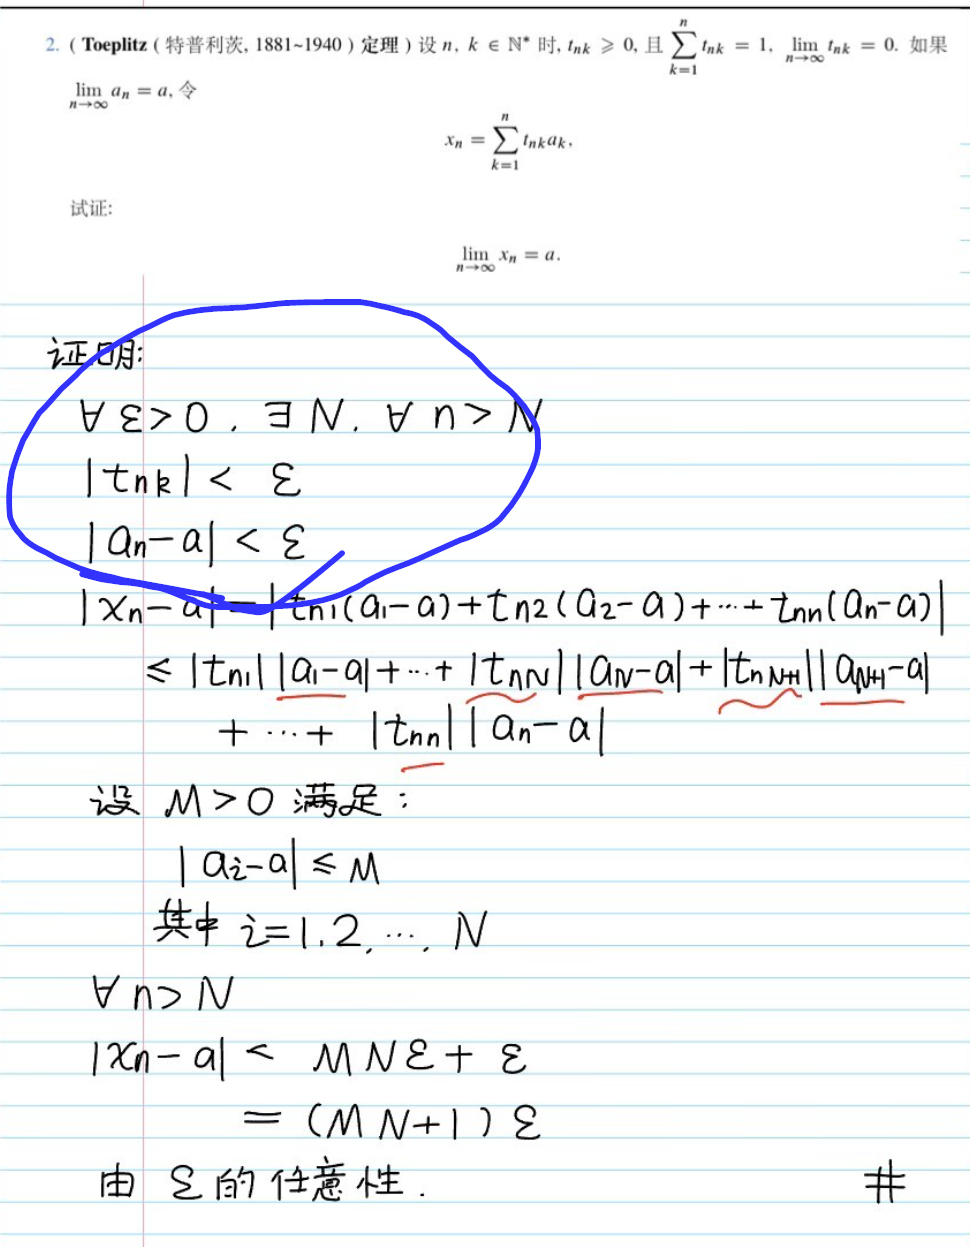 2. ( Toeplitz ( 特普利茨, 1881~1940 ) 定理 ) 设 n, k ∈ N* 时, tₙₖ ⩾ 0, 且 ∑_{k=1}^{n} tₙₖ = 1, lim_{n→∞} tₙₖ = 0. 如果
lim_{n→∞} aₙ = a, 令
xₙ = ∑_{k=1}^{n} tₙₖaₖ,
试证:
lim_{n→∞} xₙ = a.
证明:
∀ ε>0 . ∃ N. ∀ n > N
|tₙₖ| < ε
|aₙ-a| < ε
|xₙ-a| = |tₙ₁(a₁-a)+tₙ₂(a₂-a)+…+tₙₙ(aₙ-a)|
≤ |tₙ₁||a₁-a|+…+|t_{nN}||a_N-a|+|t_{nN+1}||a_{N+1}-a|
+ …+ |tₙₙ||aₙ-a|
设 M>0 满足 :
|aᵢ-a| ≤ M
其中 i=1.2,…, N
∀ n> N
|xₙ-a| < MNε+ ε
= (MN+1) ε
由 ε 的任意性. #